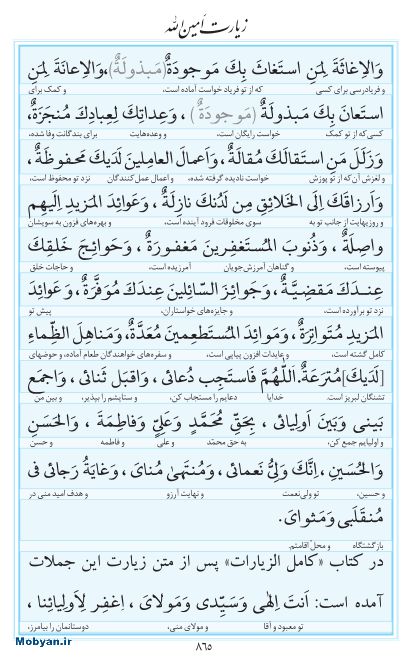 زیارت اَمین الله
وَالاِغاثَةَ لِمَنِ استَغاثَ بِكَ مَوجودَةٌ(مَبذولَةٌ)،وَالاِعانَةَ لِمَنِ
و فریادرسی برای کسی که از تو فریاد خواست آماده است، و کمک برای
استَعانَ بِكَ مَبذولَةٌ (مَوجودَةٌ) ، وَعِداتِكَ لِعِبادِكَ مُنجَزَةٌ،
کسی‌که از تو کمک خواست رایگان است، و وعده‌هایت برای بندگانت وفا شده،
وَزَلَلَ مَنِ استَقالَكَ مُقالَةٌ، وَاَعمالَ العامِلینَ لَدَیكَ مَحفوظَةٌ،
و لغزش آن‌که از تو پوزش خواست نادیده گرفته شده، و اعمال عمل کنندگان نزد تو محفوظ است،
وَاَرزاقَكَ اِلَی الخَلائِقِ مِن لَدُنكَ نازِلَةٌ، وَعَوائِدَ المَزیدِ اِلَیهِم
و روزیهایت از جانب تو به سوی مخلوقات فرود آینده است، و بهره‌های فزون به سویشان
واصِلَةٌ، وَذُنوبَ المُستَغفِرینَ مَغفورَةٌ، وَحَوائِجَ خَلقِكَ
پیوسته است، و گناهان آمرزش‌جویان آمرزیده است، و حاجات خلق
عِندَكَ مَقضِیَّةٌ، وَجَوائِزَ السّائِلینَ عِندَكَ مُوَفَّرَةٌ، وَعَوائِدَ
نزد تو برآورده است، و جایزه‌های خواستاران، پیش تو
المَزیدِ مُتَواتِرَةٌ، وَمَوائِدَ المُستَطعِمینَ مُعَدَّةٌ، وَمَناهِلَ الظِّماءِ
کامل گشته است، و عایدات افزون پیاپی است، و سفره‌های خواهندگان طعام آماده، و حوضهای
[لَدَیكَ]مُترَعَةٌ. اَللّهُمَّ فَاستَجِب دُعائی، وَاقبَل ثَنائی، وَاجمَع
تشنگان لبریز است. خدایا دعایم را مستجاب کن، و ستایشم را بپذیر، و بین من
بَینی وَبَینَ اَولِیائی ، بِحَقِّ مُحَمَّدٍ وَعَلِیٍّ وَفاطِمَةَ ، وَالحَسَنِ
و اولیایم جمع کن، به حق محمّد و علی و فاطمه و حسن
وَالحُسَینِ، اِنَّكَ وَلِیُّ نَعمائی، وَمُنتَهیٰ مُنایَ، وَغایَةُ رَجائی فی
و حسین، تو ولی‌نعمت و نهایت آرزو و هدف امید منی در
مُنقَلَبی وَمَثوایَ.
بازگشتگاه و محلّ اقامتم.
در کتاب «کامل الزیارات» پس از متن زیارت این جملات
آمده است: اَنتَ اِلهی وَسَیِّدی وَمَولایَ، اِغفِر لِاَولِیائِنا ،
تو معبود و آقا و مولای منی، دوستانمان را بیامرز،
Mobyan.ir
۸۶۵